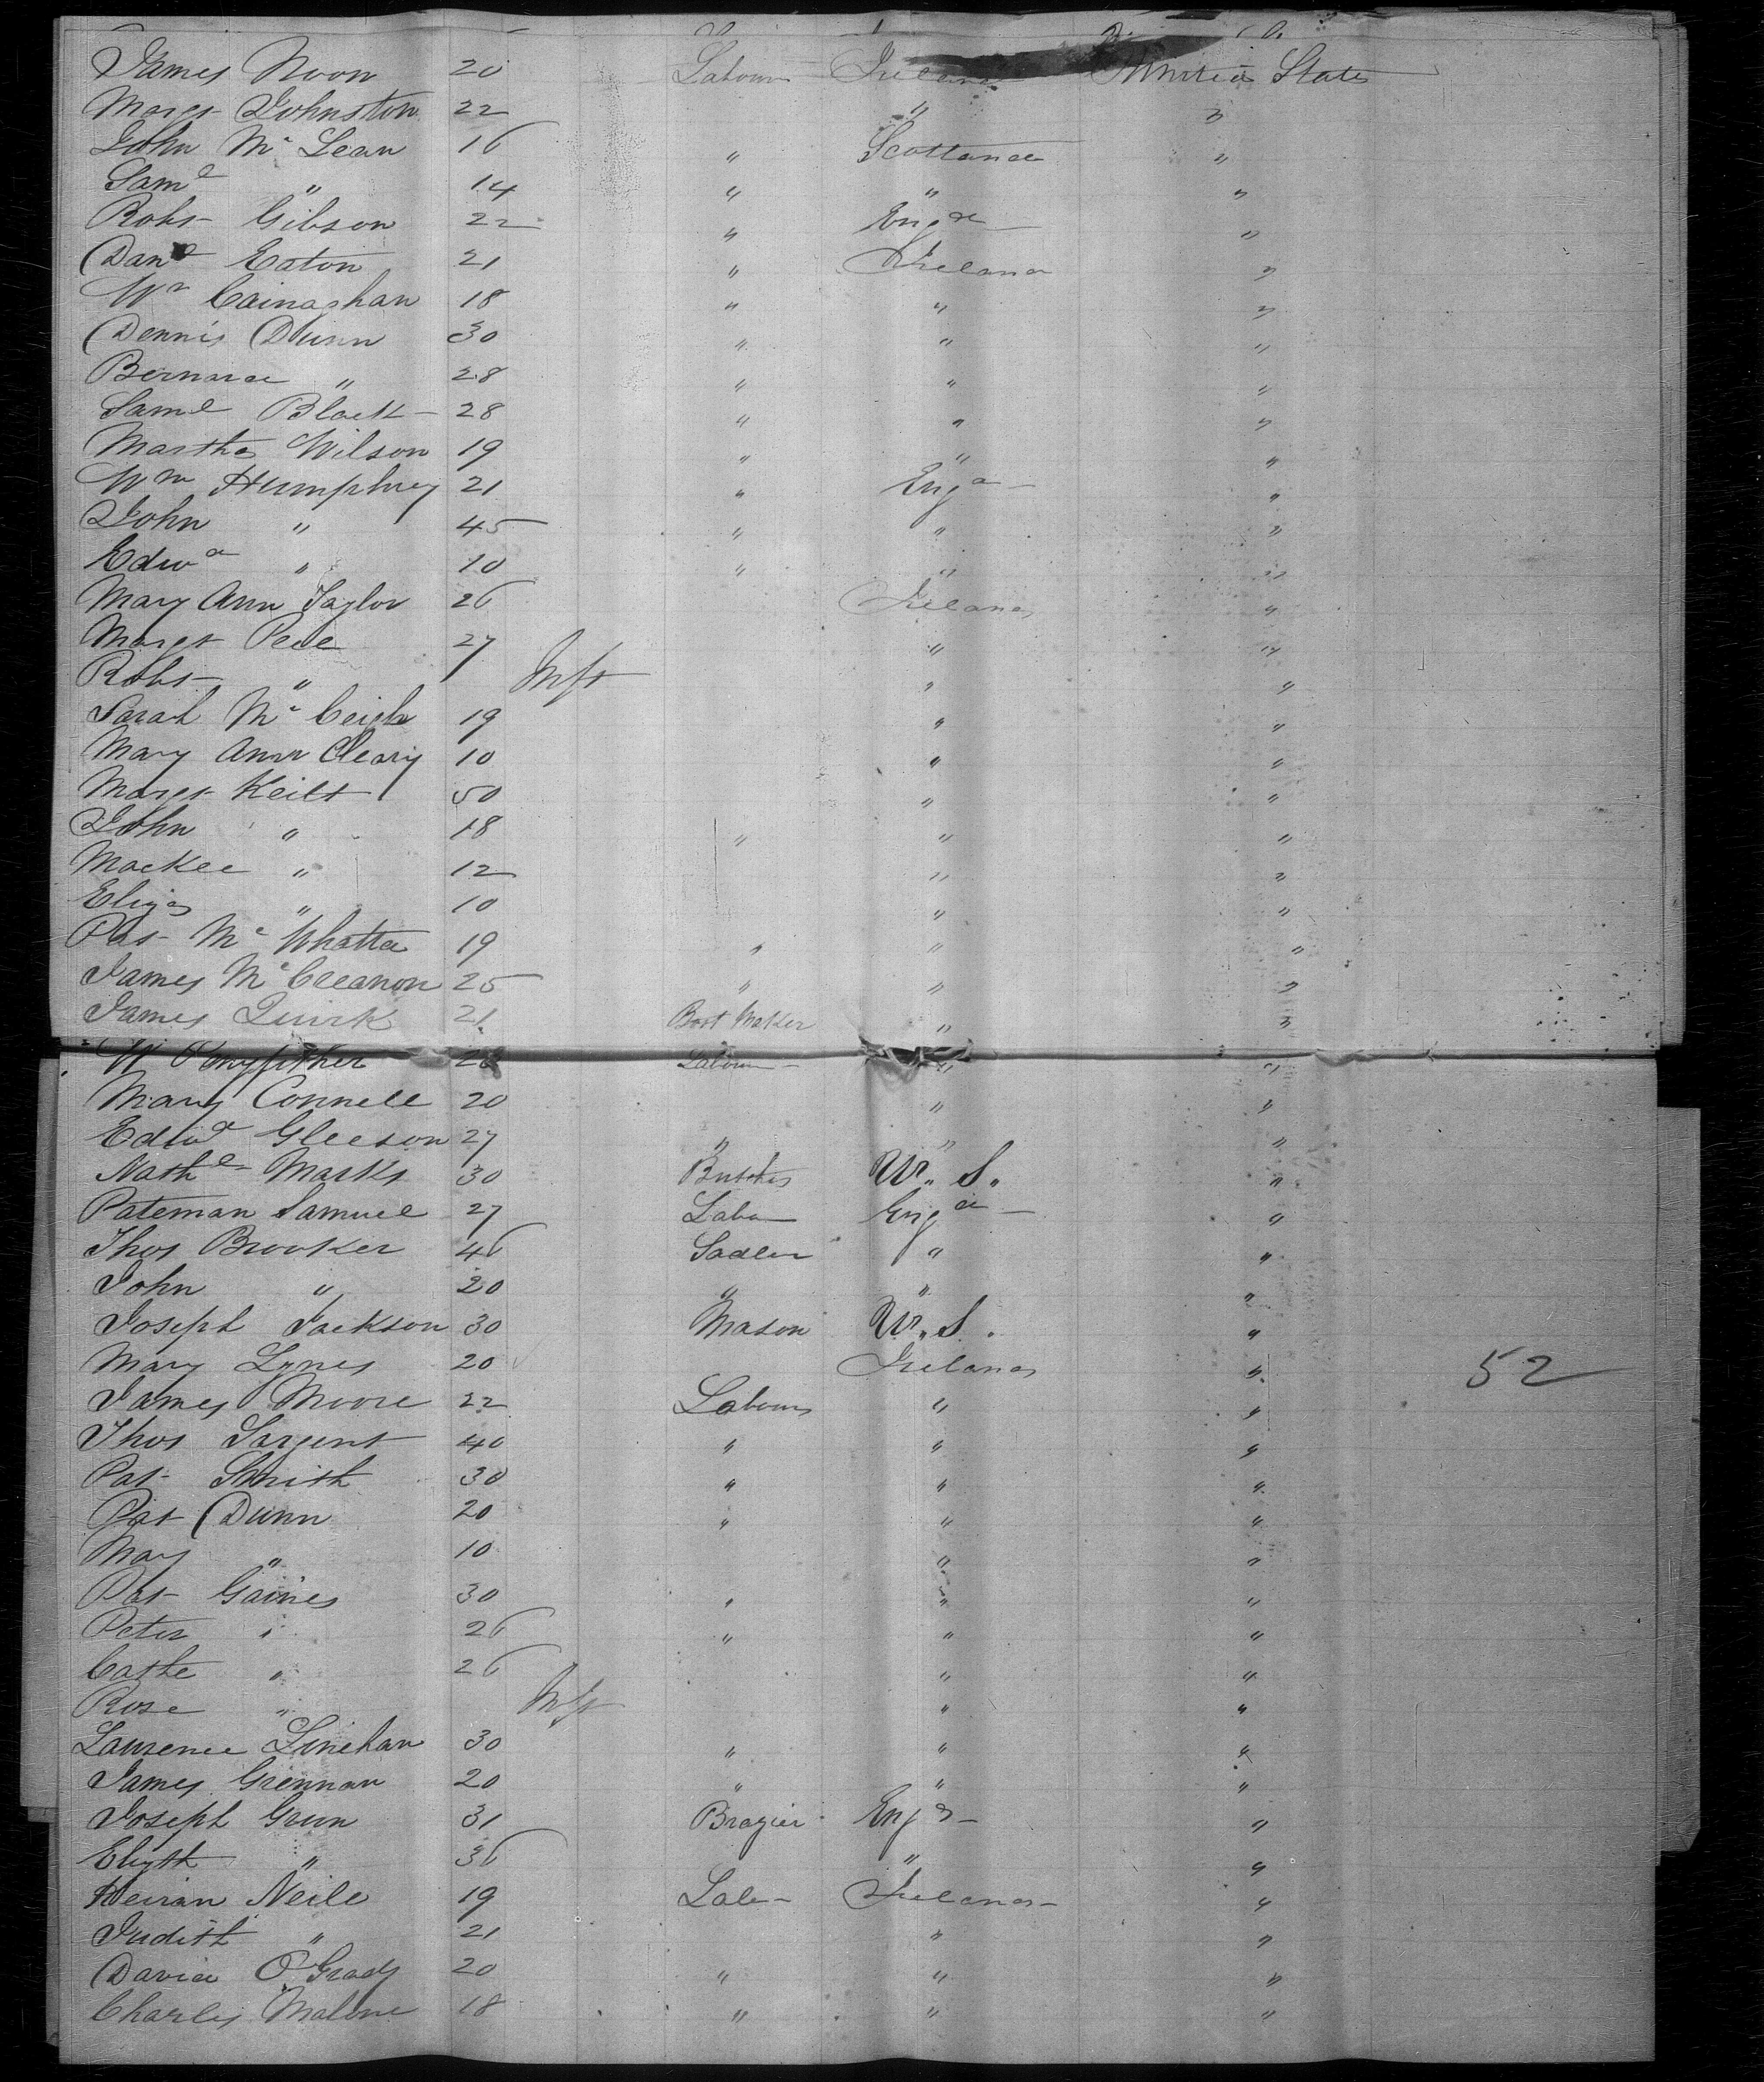 James Noon 20 Labour Ireland United States
Margt Johnston 22 " "
John Mc Lean 16 " Scotland "
Saml " 14 " " "
Robt Gibson 22 " Engd "
Danl Eaton 21 " Ireland "
Wm Cainaghan 18 " " "
Dennis Dunn 30 " " "
Bernard " 28 " " "
Saml Black 28 " " "
Martha Wilson 19 " " "
Wm Humphrey 21 " Engd "
John " 45 " " "
Edwd " 10 " " "
Mary Ann Taylor 26 Ireland "
Margt Peel 27 " "
Robt " Inft " "
Sarah Mc Ceigh 19 " "
Mary Ann Cleary 10 " "
Margt Keilt 50 " "
John " 18 " " "
Mackee " 12 " "
Eliza " 10 " "
Pat Mc Whatta 19 " " "
James Mc Cleanon 25 " " "
James Quirk 21 Boot Maker " "
W 26 Labour " "
Mary Connell 20 " "
Edwd Gleeson 27 " " "
Nathl Marks 30 Butcher U. S. "
Pateman Samuel 27 Labo Engd "
Thos Brooker 46 Sadler " "
John " 20 " " "
Joseph Jackson 30 Mason U. S. "
Mary Lynes 20 Ireland " 52
James Moore 22 Labour " "
Thos Sargent 40 " " "
Pat Smith 30 " " "
Pat Dunn 20 " " "
Mary " 10 " "
Pat Gaines 30 " " "
Peter " 26 " " "
Cathe " 26 " "
Rose " Inft " "
Laurence Linehan 30 " " "
James Grennan 20 " " "
Joseph Grun 31 Brazier Engd "
Elizth " 36 " "
Keiran Neile 19 Labr Ireland "
Judith " 21 " "
David O'Grady 20 " " "
Charles Malone 18 " " "